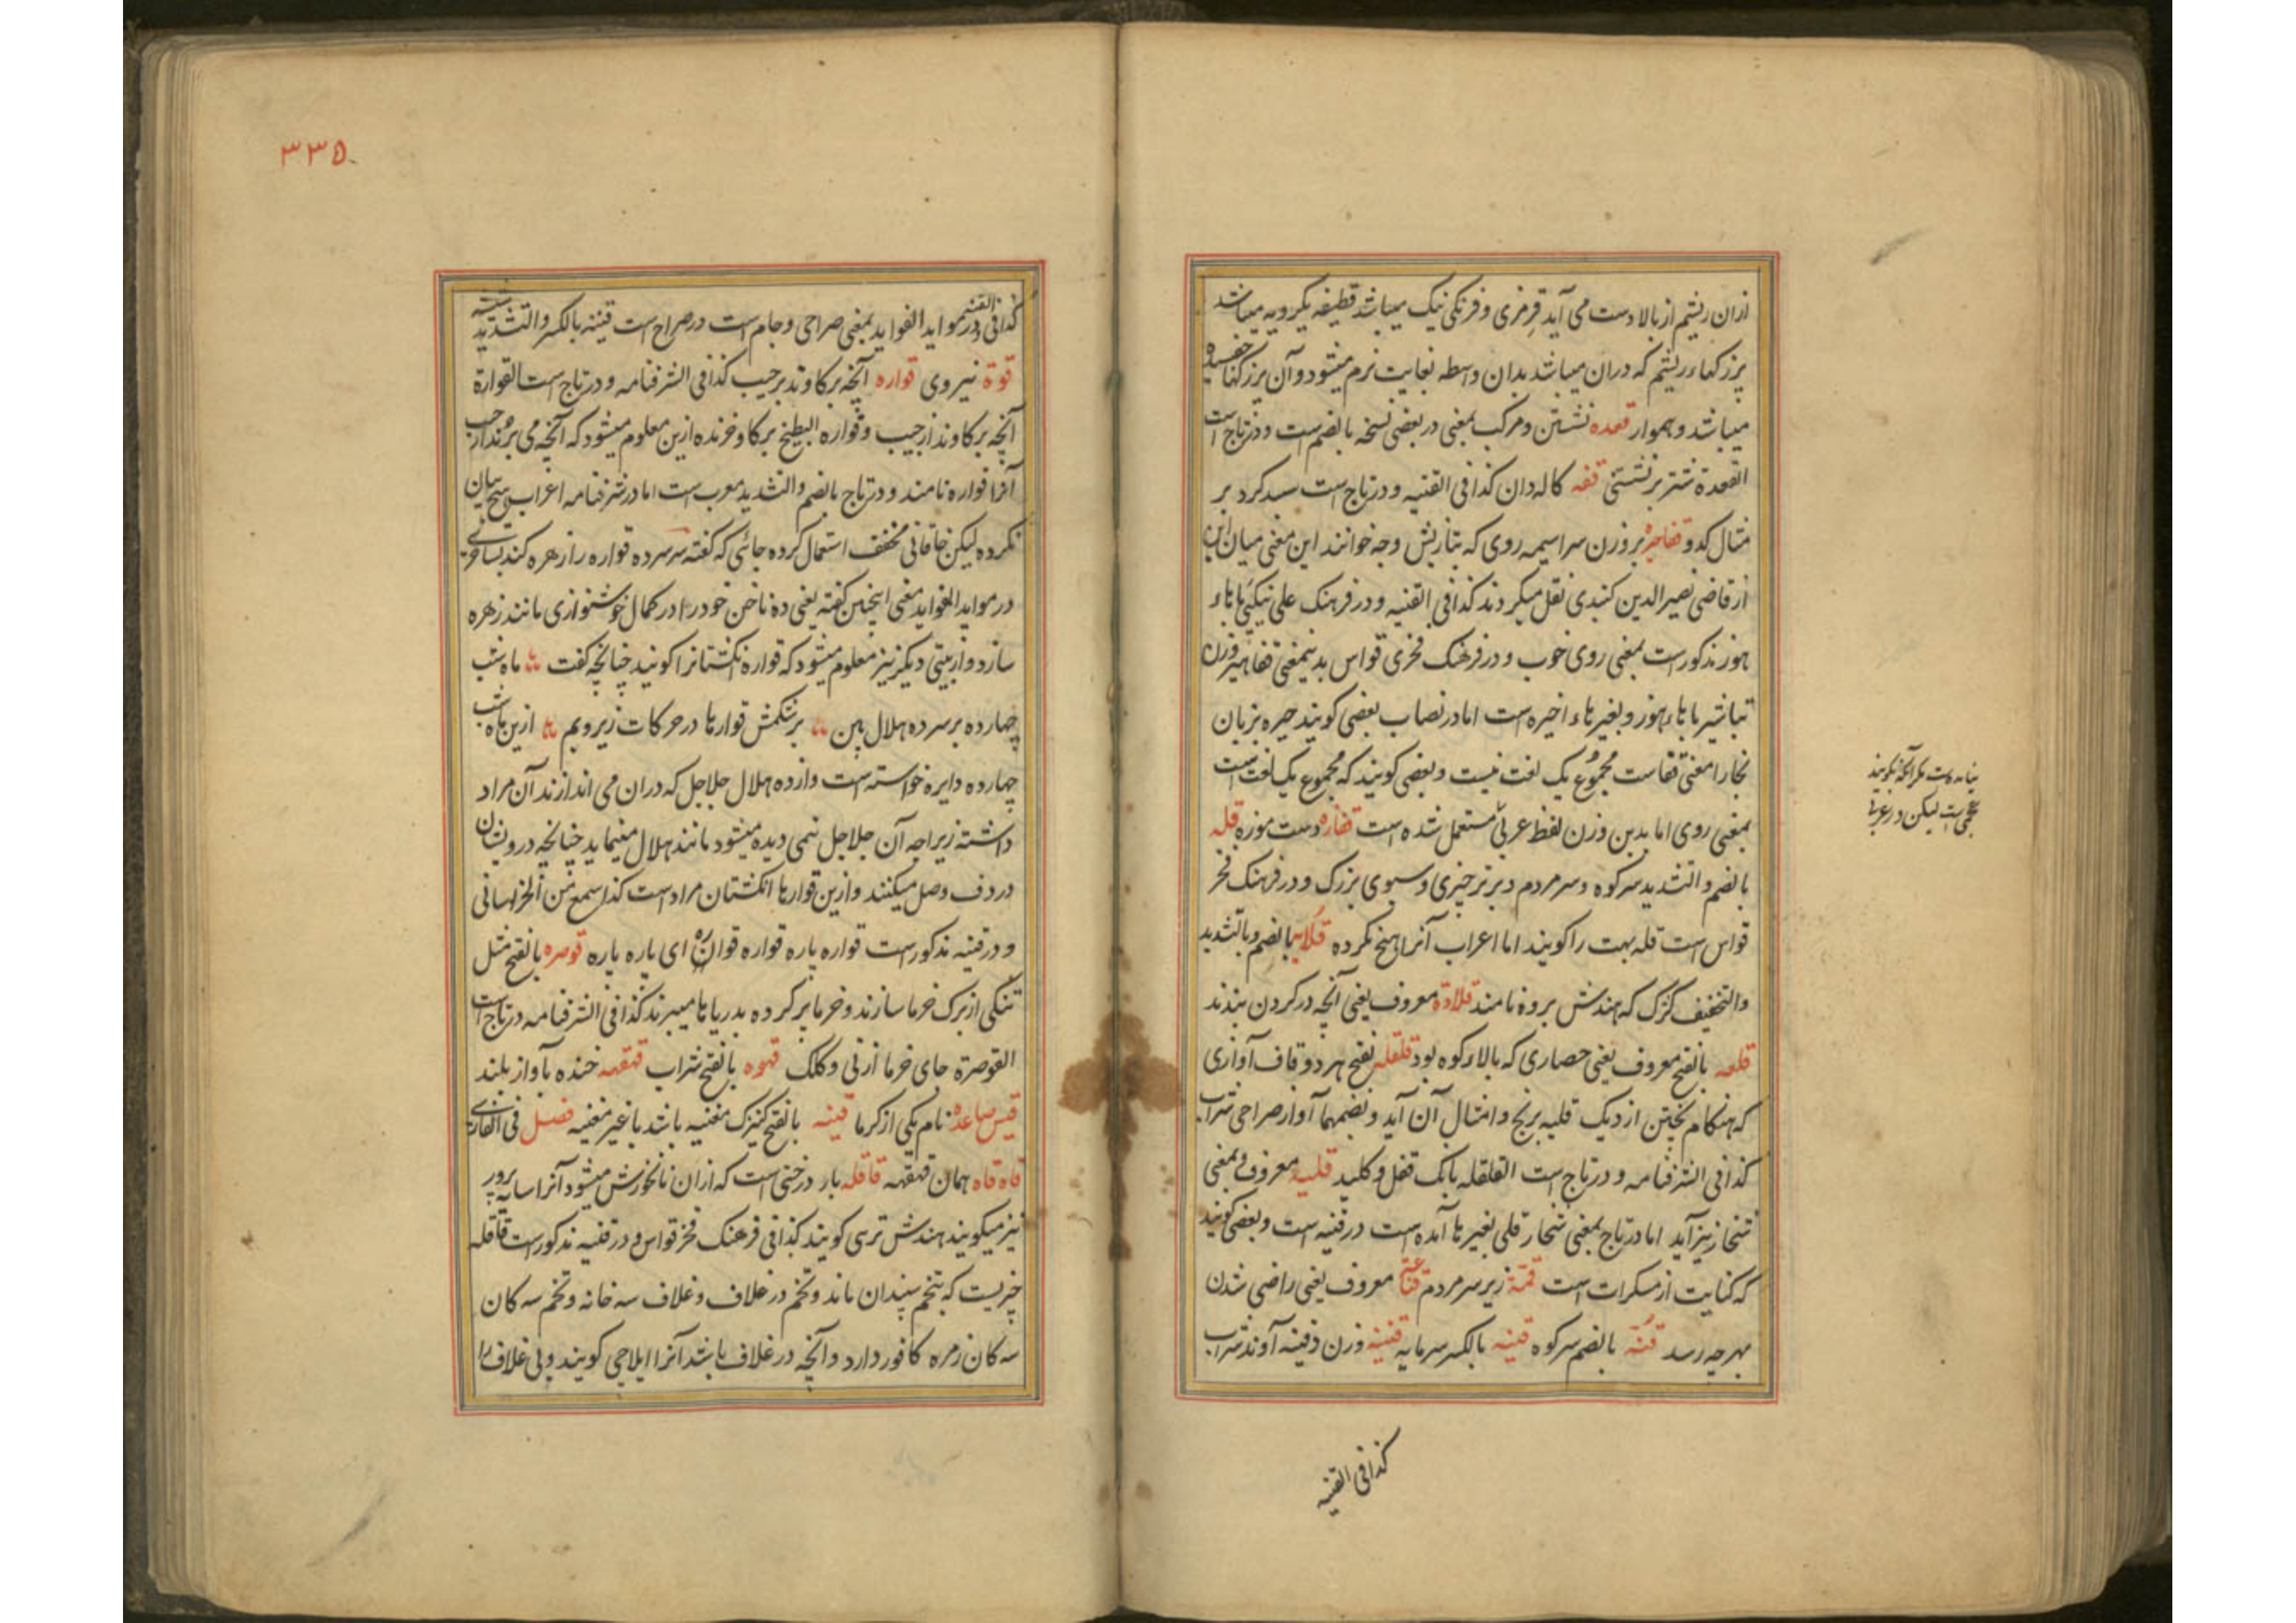 ازان ریشم از بالا دست می آید قرمزی و فرنکی نیک میباشد قطیفه یکرویه میباشد
پرزکهاء ریشم که دران میباشد بدان واسطه بغایت نرم میشود و آن پرزکها خفسیده
میباشد و هموار قعده نشستن و مرکب بمعنی در بعضی نسخه بالضم است و در تاج است
القعدة شتر برنشستنی قفه کاله دان کذا فی القنیه و در تاج است سبد کرد بر
مثال کدو قفاچیره بر وزن سراسیمه روی که بتازیش وجه خوانند این معنی میان این
از قاضی نصیر الدین کنبدی نقل میکردند کذا فی القنیه و در فرهنک علی نیکپی با باء
هوز مذکور است بمعنی روی خوب و در فرهنک فخری قواس بدینمعنی قفاهیر وزن
تباشیر با هاء هوز و بغیر هاء اخیره است اما در نصاب بعضی کویند چیره بزبان
بخارا معنی قفاست مجموع یک لغت نیست و بعضی کویند که مجموع یک لغت است
بمعنی روی اما بدین وزن لفظ عربی مستعمل شده است قفازه دست موزه قله
بالضم و التشدید سر کوه و سر مردم و برتر چیزی و سبوی بزرک و در فرهنک فخر
قواس است قله بهت را کویند اما اعراب آنرا هیچ نکرده قلابه بالضم و بالتشدید
والتخفیف کژک که هندش بروه نامند قلادة معروف یعنی آنچه در کردن بندند
قلعه بالفتح معروف یعنی حصاری که بالاء کوه بود قلقله بفتح هر دو قاف آوازی
که هنکام پختن از دیک قلیه برنج و امثال آن آید و بضمهما آواز صراحی شراب
کذا فی الشرفنامه و در تاج است القلقله بانک قفل و کلید قلیه معروف و بمعنی
شخار نیز آید اما در تاج بمعنی شخار قلی بغیر ها آمده است در قنیه است و بعضی کویند
که کنایت از مسکرات است قمة زبر سر مردم قناعة معروف یعنی راضی شدن
بهر چه رسد قنه بالضم سر کوه قنیه بالکسر سرمایه قنینه وزن دفینه آوند شراب
بیانه است مکر آنکه بکویند
عجمی است لیکن در عربی
کذا فی القنیه
۳۳۵
کذا فی القنیه در مواید الفواید بمعنی صراحی و جام است در صراح است قنینه بالکسر و التشدید شیشه
قوة نیروی قواره آنچه برکاوند بر جیب کذا فی الشرفنامه و در تاج است القوارة
آنچه برکاوند از جیب و قواره البطیخ برکاو خربزه ازین معلوم میشود که آنچه می برند از جیب
آنرا قواره نامند و در تاج بالضم و التشدید معرب است اما در شرفنامه اعراب هیچ بیان
نکرده لیکن خاقانی مخفف استعمال کرده جائی که کفته سر سر ده قواره را زهره کند بساحری
در مواید الفواید معنی اینچنین کفته یعنی ده ناخن خود را در کمال خوشنوازی مانند زهره
سازد و از بیتی دیکر نیز معلوم میشود که قواره نکشتانرا کویند چنانچه کفت ماه شب
چهارده بر سر ده هلال بین بر شکمش قوارها در حرکات زیر و بم ازین ماه شب
چهارده دایره خواسته است و از ده هلال جلاجل که دران می اندازند آن مراد
داشته زیراچه آن جلاجل نیمی دیده میشود مانند هلال مینماید چنانچه درویشان
در دف وصل میکنند و ازین قوارها انکشتان مراد است کذا سمع من الخراسانی
و در قنیه مذکور است قواره پاره قواره قواره ای پاره پاره قوصره بالفتح مثل
تنکی از برک خرما سازند و خرما پر کرده بدریاها میبرند کذا فی الشرفنامه در تاج است
القوصرة جای خرما از نی و کلک قهوه بالفتح شراب قهقهه خنده بآواز بلند
قیس صاعده نام یکی از کرما قینه بالفتح کنیزک مغنیه باشد یا غیر مغنیه فصل فی الفارسی
قاه قاه همان قهقهه قاقله بار درختی است که ازان نانخورش میشود آنرا سایه پرور
نیز میکویند هندش تری کویند کذا فی فرهنک فخر قواس و در قنیه مذکور است قاقله
چیزیست که بتخم سپندان ماند و تخم در غلاف و غلاف سه خانه و تخم سه کان
سه کان زمره کافور دارد و آنچه در غلاف باشد آنرا ایلاچی کویند و بی غلاف را